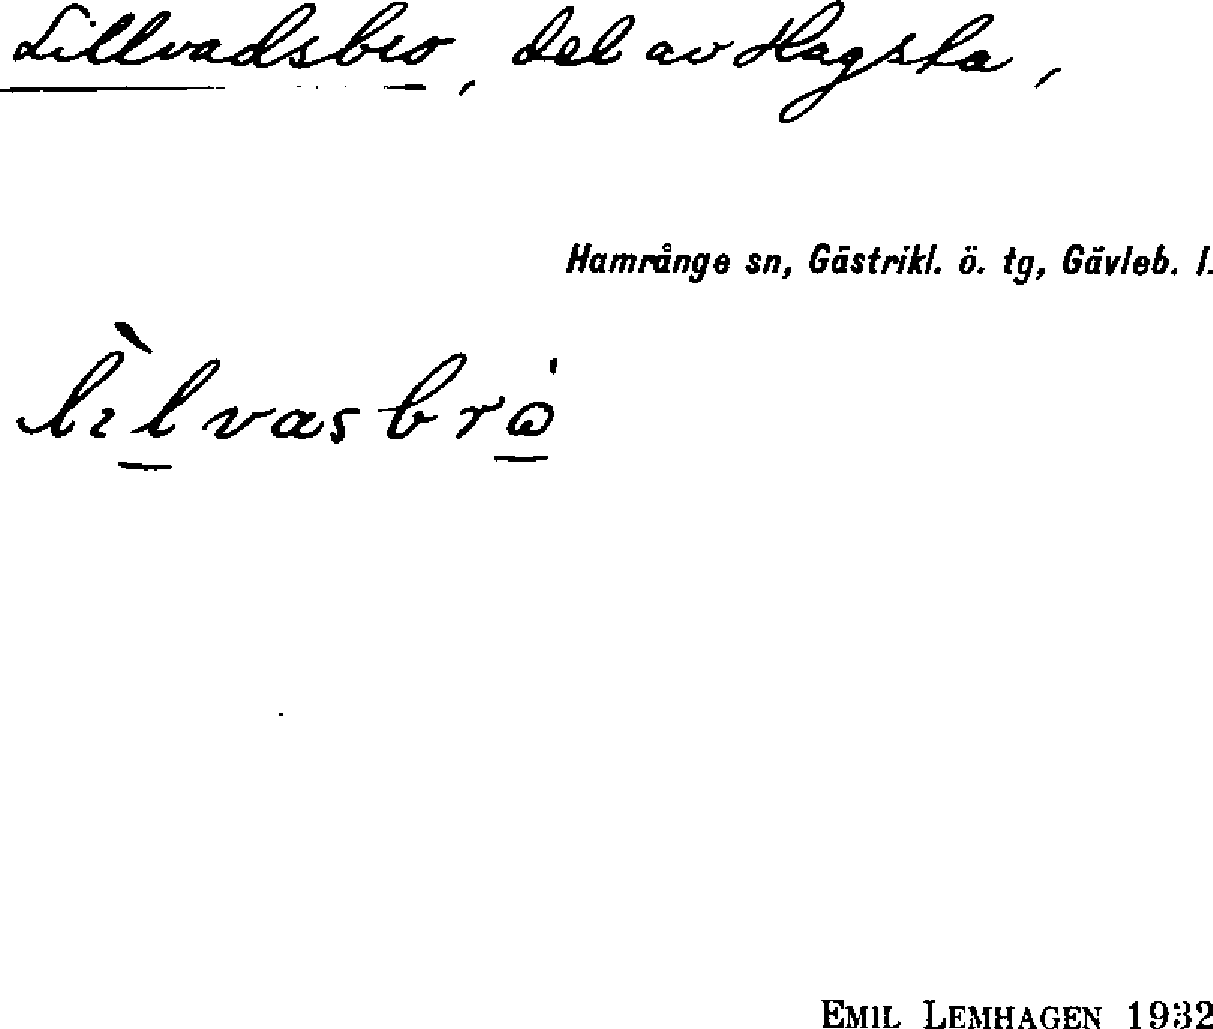 Lillvadsbro, del av Hagsta,
Hamrånge sn, Gästrikl. ö. tg, Gävleb. l.
lɩ̀lvasbrω̇
EMIL LEMHAGEN 1932